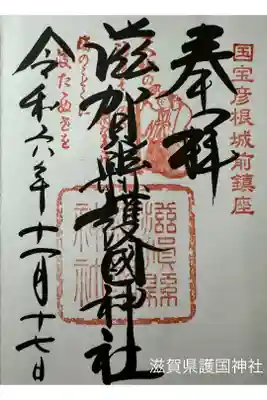 国宝彦根城前鎮座
奉拝
滋賀縣護國神社
令和六年十一月十七日
滋賀県護国神社